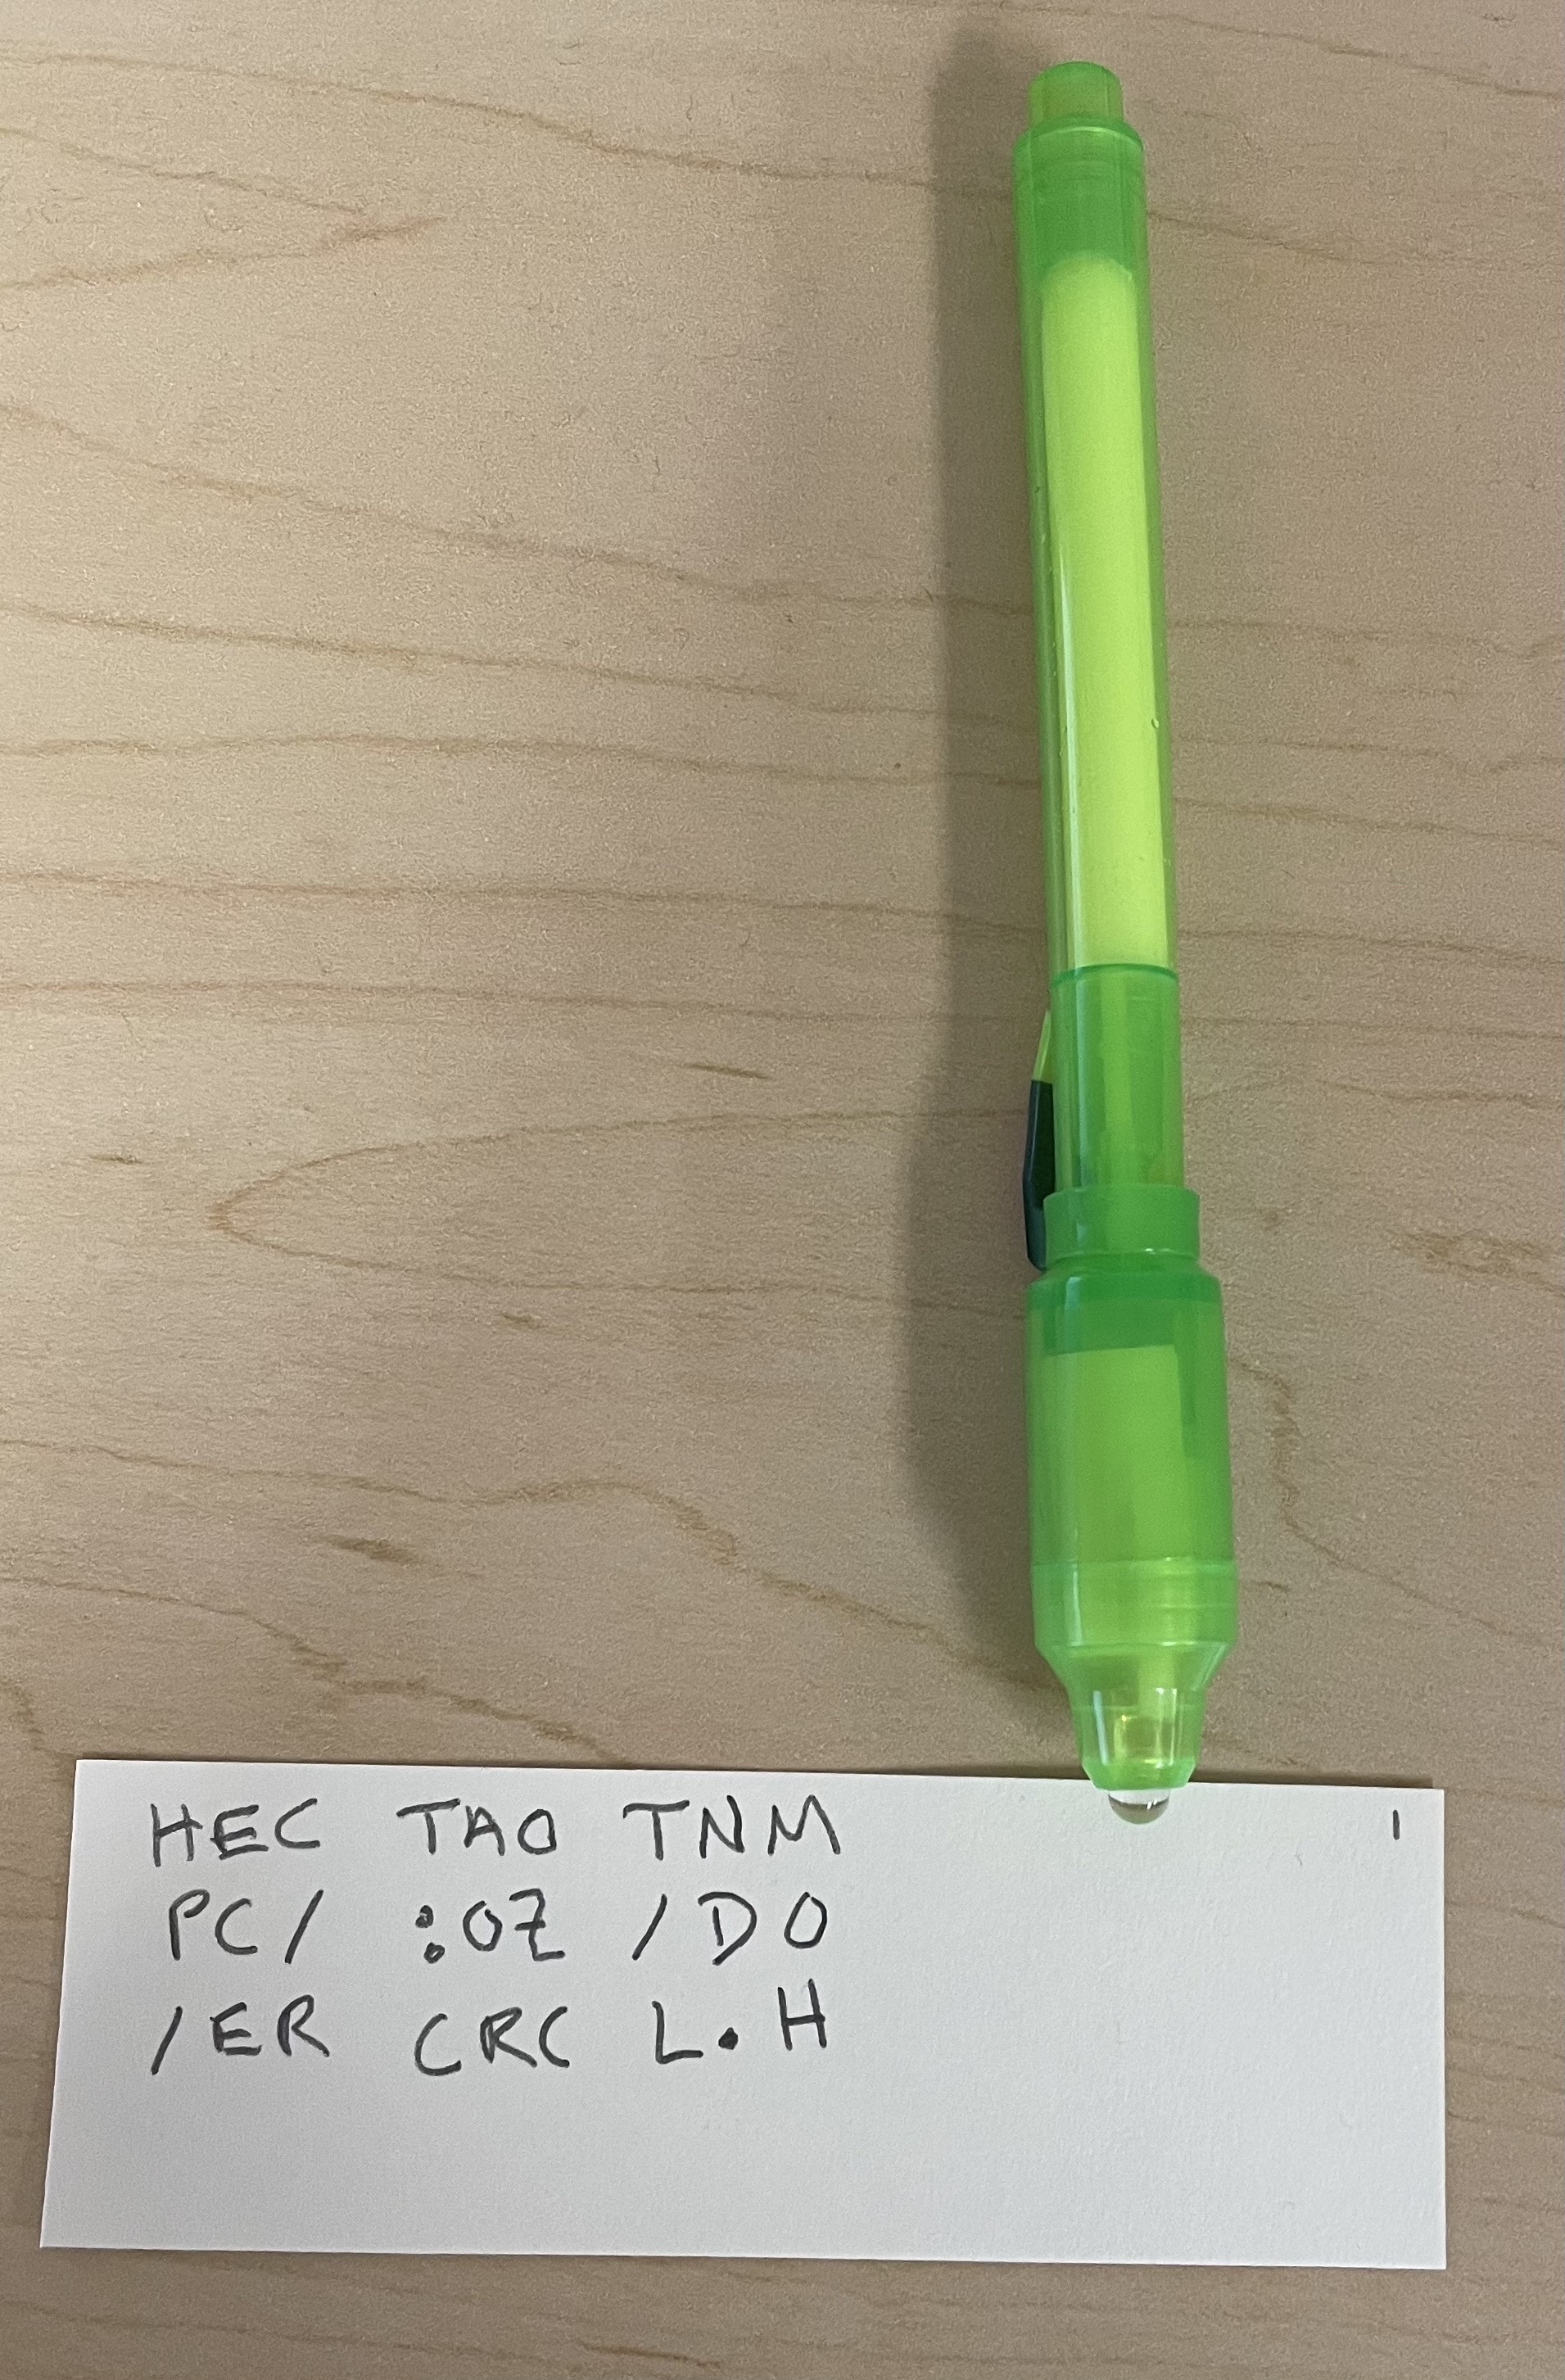 HEC TAO TNM 1
PC/ :OZ /DO
/ER CRC L.H